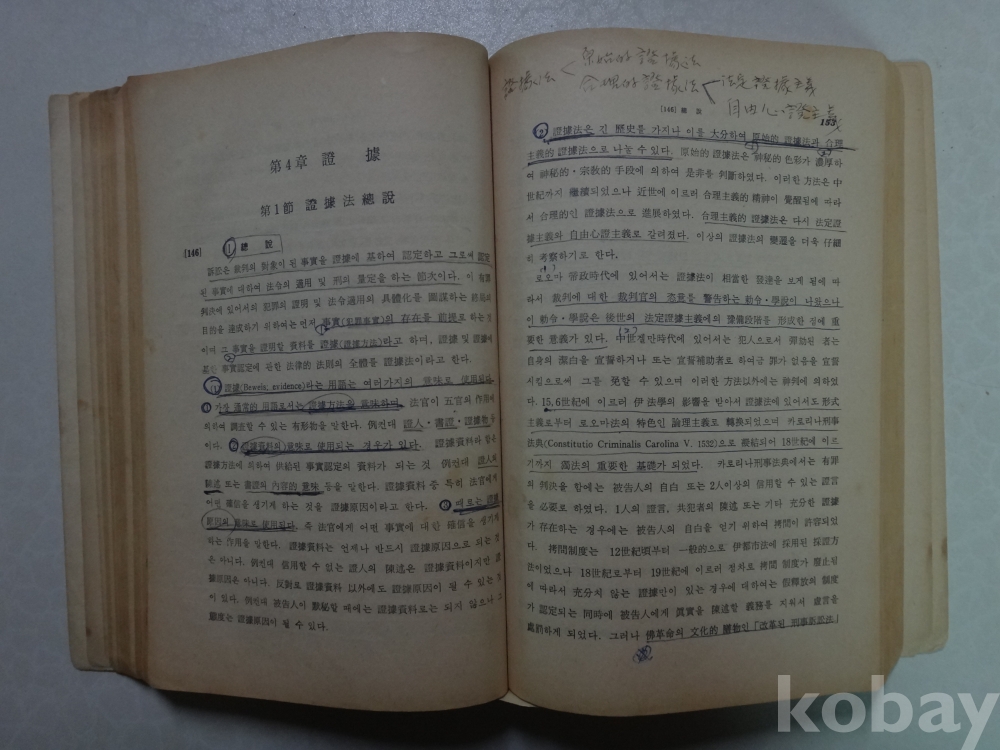 第4章 證 據
第1節 證據法總說
[146] ① 總 說
訴訟은 裁判의 對象이 된 事實을 證據에 基하여 認定하고 그로써 認定
된 事實에 대하여 法令의 適用 및 刑의 量定을 하는 節次이다. 이 有罪
判決에 있어서의 犯罪의 證明 및 法令適用의 具體化를 圖謀하는
目的을 達成하기 위하여는 먼저 事實(犯罪事實)의 存在를 前提로 하는
이며 그 事實을 證明할 資料를 證據(證據方法)라고 하며, 證據 및 證據에
基한 事實認定에 관한 法律的 法則의 全體를 證據法이라고 한다.
(1) 證據(Beweis, evidence)라는 用語는 여러가지의 意味로 使用된다.
① 가장 通常的 用語로서는 證據方法을 意味하며, 法官이 五官의 作用에
의하여 調査할 수 있는 有形物을 말한다. 例컨대 證人・書證・證據物
이다. ② 證據資料의 意味로 使用되는 경우가 있다. 證據資料라 함은
證據方法에 의하여 供給된 事實認定의 資料가 되는 것 例컨대 證人의
陳述 또는 書證의 內容的 意味 등을 말한다. 證據資料 중 특히 法官에게
어떤 確信을 생기게 하는 것을 證據原因이라고 한다. ③ 때로는 證據
原因의 意味로 使用된다. 즉 法官에게 어떤 事實에 대한 確信을 생기게
하는 作用을 말한다. 證據資料는 언제나 반드시 證據原因으로 되는 것
은 아니다. 例컨대 信用할 수 없는 證人의 陳述은 證據資料이지만 證
據原因은 아니다. 反對로 證據資料 以外에도 證據原因이 될 수 있는 것
이 있다. 例컨대 被告人이 默秘할 때에는 證據資料로는 되지 않으나 그
態度는 證據原因이 될 수 있다.
證據法 < 原始的 證據法
合理的 證據法 < 法定 證據主義
自由心證主義
[146] 總 說 153
② 證據法은 긴 歷史를 가지나 이를 大分하여 原始的 證據法과 合理
主義的 證據法으로 나눌 수 있다. 原始的 證據法은 神秘的 色彩가 濃厚하
여 神秘的・宗敎的 手段에 의하여 是非를 判斷하였다. 이러한 方法은 中
世紀까지 繼續되었으나 近世에 이르러 合理主義的 精神이 覺醒됨에 따라
서 合理的인 證據法으로 進展하였다. 合理主義的 證據法은 다시 法定證
據主義와 自由心證主義로 갈려졌다. 이상의 證據法의 變遷을 더욱 仔細
히 考察하기로 한다.
(1)
로오마 帝政時代에 있어서는 證據法이 相當한 發達을 보게 됨에 따
라서 裁判에 대한 裁判官의 恣意를 警告하는 勅令・學說이 나왔으나
이 勅令・學說은 後世의 法定證據主義에의 豫備段階를 形成한 점에 重
要한 意義가 있다. (2) 中世젤만時代에 있어서는 犯人으로서 彈劾된 者는
自身의 潔白을 宣誓하거나 또는 宣誓補助者로 하여금 罪가 없음을 宣誓
시킴으로써 그를 免할 수 있으며 이러한 方法以外에는 神判에 의하였
다. 15, 6世紀에 이르러 伊法學의 影響을 받아서 證據法에 있어서도 形式
主義로부터 로오마法의 特色인 論理主義로 轉換되었으며 카로리나刑事
法典(Constitutio Criminalis Carolina V. 1532)으로 凝結되어 18世紀에 이르
기까지 獨法의 重要한 基礎가 되었다. 카로리나刑事法典에서는 有罪
의 判決을 함에는 被告人의 自白 또는 2人이상의 信用할 수 있는 證言
을 必要로 하였다. 1人의 證言, 共犯者의 陳述 또는 기타 充分한 證據
가 存在하는 경우에는 被告人의 自白을 얻기 위하여 拷問이 許容되었
다. 拷問制度는 12世紀頃부터 一般的으로 伊都市法에 採用된 採證方
法이었으나 18世紀로부터 19世紀에 이르러 점차로 拷問 制度가 廢止됨
에 따라서 充分치 않는 證據만이 있는 경우에 대하여는 假釋放의 制度
가 認定되는 同時에 被告人에게 眞實을 陳述할 義務를 지워서 虛言을
處罰하게 되었다. 그러나 佛革命의 文化的 膳物인「改革된 刑事訴訟法」
kobay